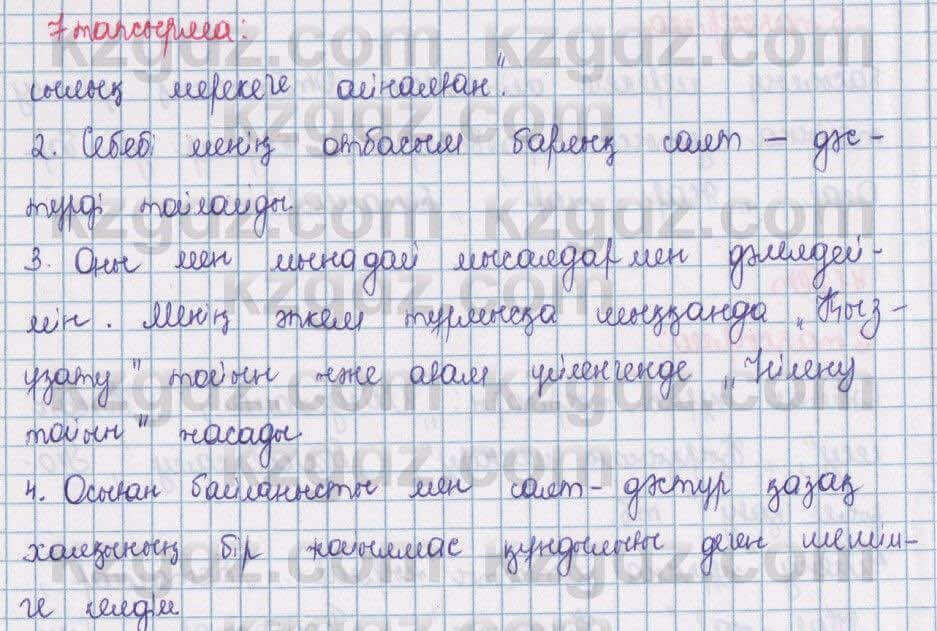 7 тапсырма:
сылық мерекеге айналған".
2. Себебі менің отбасым барлық салт - дәс-
түрді тойлайды.
3. Оны мен мынадай мысалдармен дәлелдей-
мін. Менің әпкем тұрмысқа шыққанда „Қыз-
ұзату" тойын және ағам үйленгенде „Үйлену
тойын" жасады.
4. Осыған байланысты мен салт-дәстүр қазақ
халқының бір жойылмас құндылығы деген шешім-
ге келдім